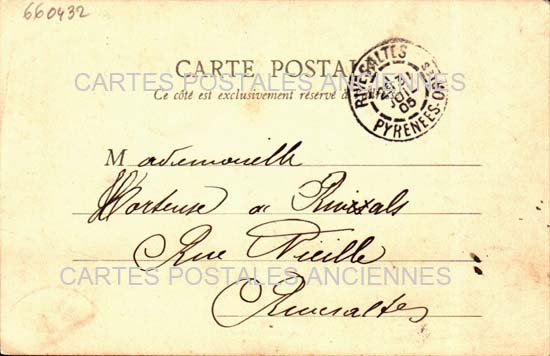 660432
CARTE POSTALE
CARTES POSTALES ANCIENNES
Ce côté est exclusivement réservé à
RIVESALTES
JUIL
05
PYRENEES ORLES
Mademoiselle
Hortense de
Rue Vieille
CARTES POSTALES ANCIENNES
Rivesaltes